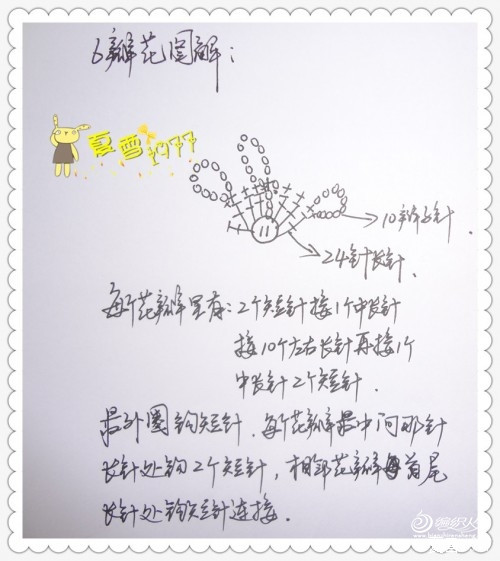 6瓣花图解：
夏雪1977
10辫子针
24针长针.
每个花瓣里有：2个短针接1个中长针
接10个左右长针再接1个
中长针2个短针.
最外圈钩短针.每个花瓣最中间那针
长针处钩2个短针，相邻花瓣每首尾
长针处钩短针连接.
编织人生